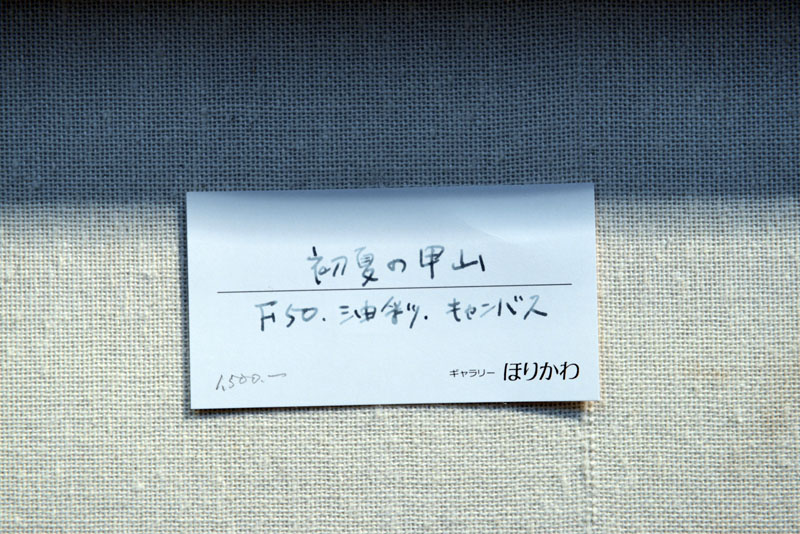 初夏の甲山
F50. 油彩. キャンバス
1,500.—
ギャラリー ほりかわ